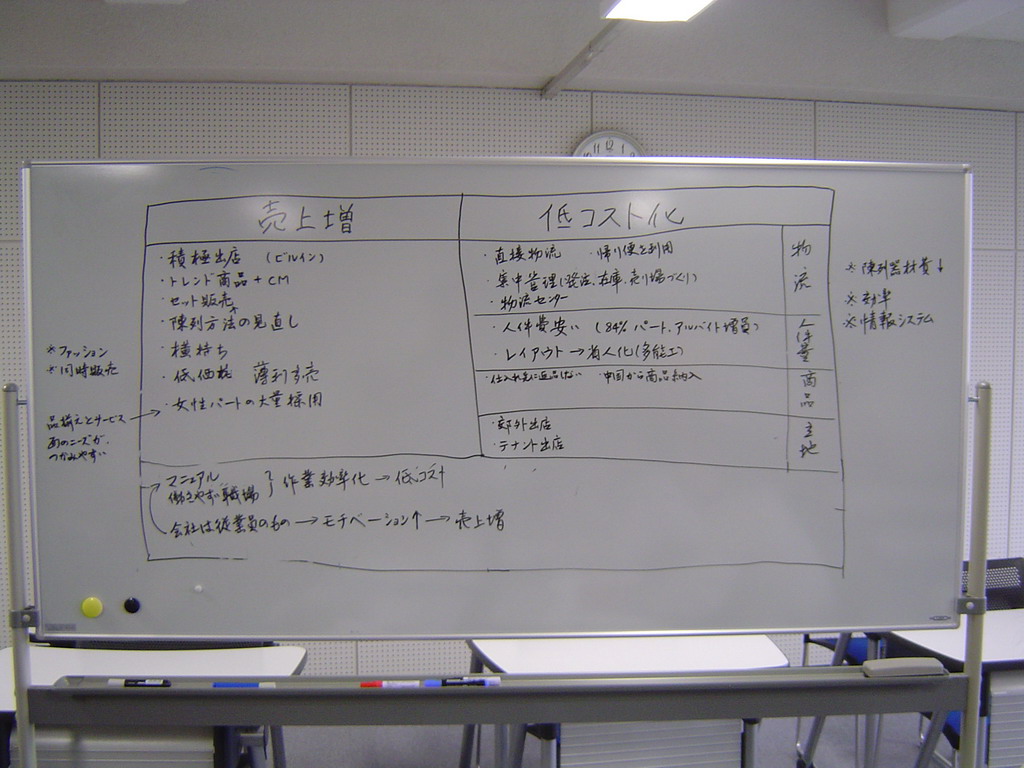 売上増
・積極出店 (ビルイン)
・トレンド商品+CM
・セット販売
・陳列方法の見直し
・横持ち
・低価格 薄利多売
・女性パートの大量採用
低コスト化
・直接物流 ・帰り便を利用
・集中管理(発注、在庫、売り場づくり)
・物流センター
物流
・人件費安い (84%パート、アルバイト増員)
・レイアウト→省人化(多能工)
人件費
・仕入れ先に返品しない ・中国から商品納入
商品
・郊外出店
・テナント出店
立地
・マニュアル
働きやすい職場 } 作業効率化→低コスト
会社は従業員のもの→モチベーション↑→売上増
※ファッション
※同時販売
品揃えとサービス
のニーズが、
つかみやすい
※陳列器材費↓
※
※情報システム
11 12 1